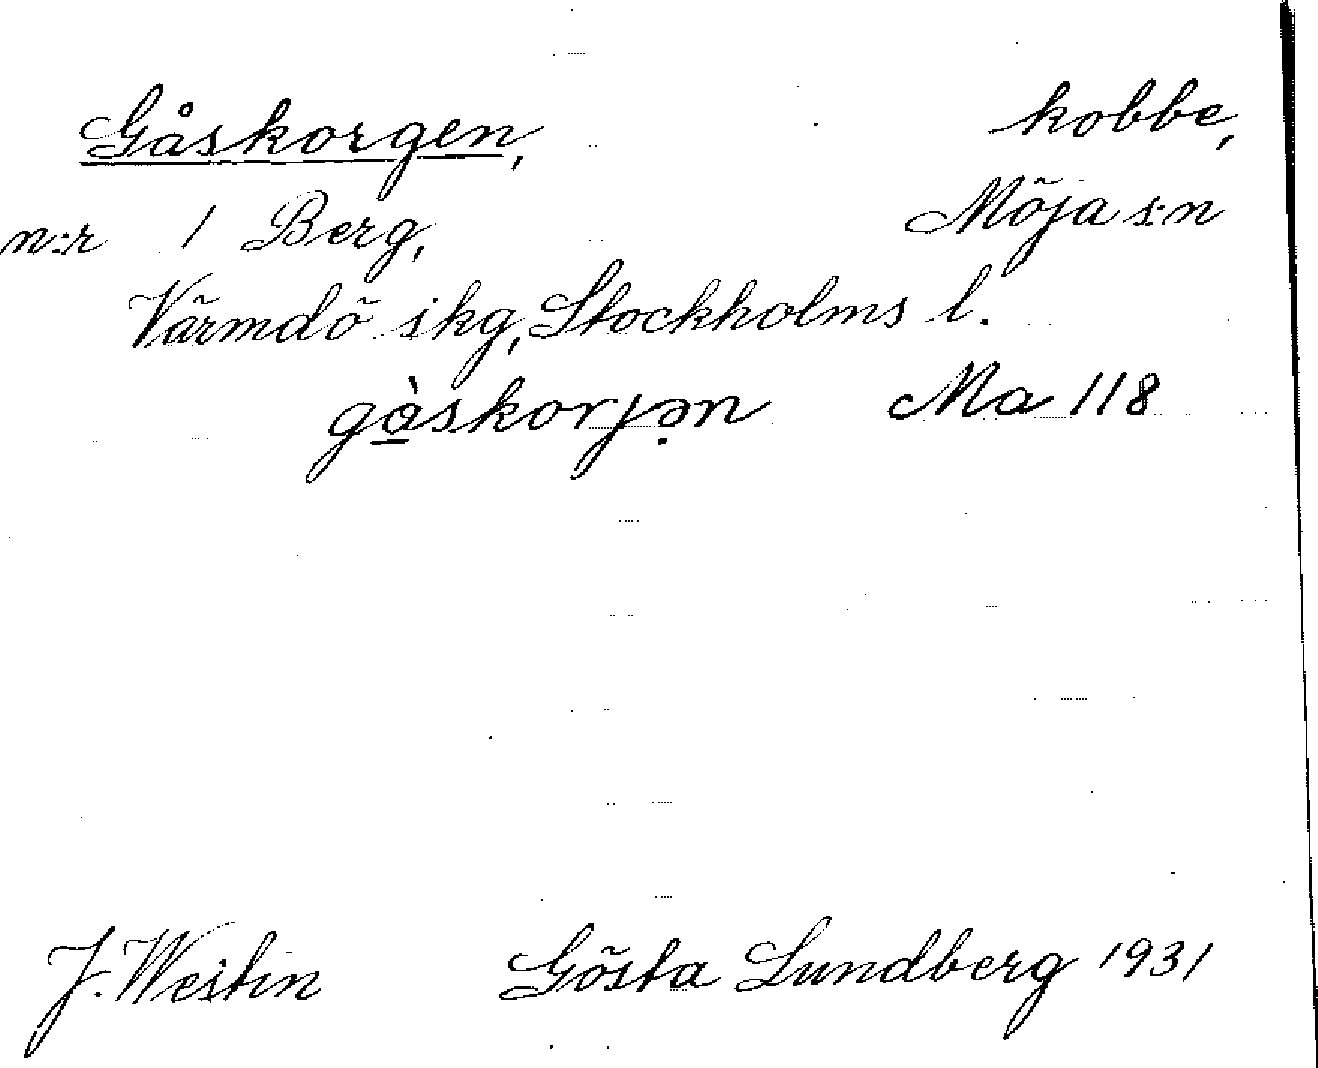 Gåskorgen, kobbe,
n:r 1 Berg, Möja s:n
Värmdö skg, Stockholms l.
gò̱skorjən Ma 118
J. Westin Gösta Lundberg 1931